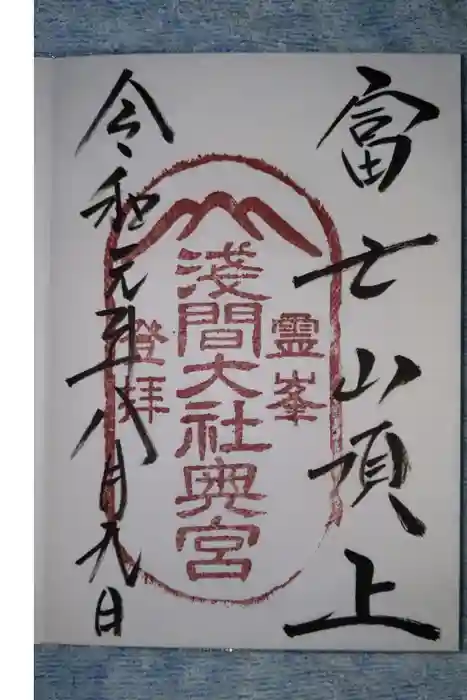 富士山頂上
霊峯
淺間大社奥宮
登拝
令和元年八月九日